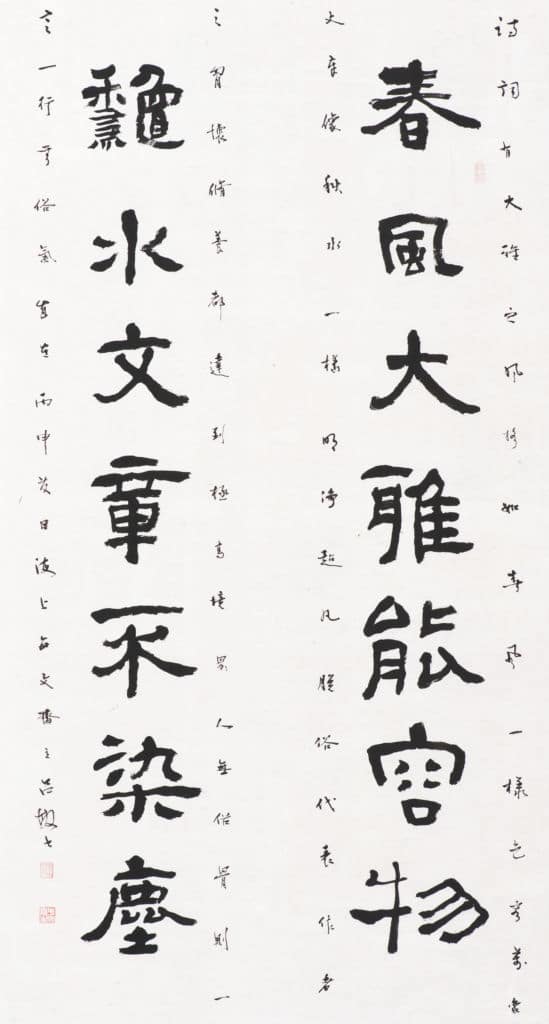 詩詞有大雅之風格如春風一樣包容萬衆
春風大雅能容物
文章像秋水一樣明淨超凡脫俗代表作者
之胸懷脩養都達到極高境界人無俗骨則一
龝水文章不染塵
言一行無俗氣 丙申 日海上 文齋主吕